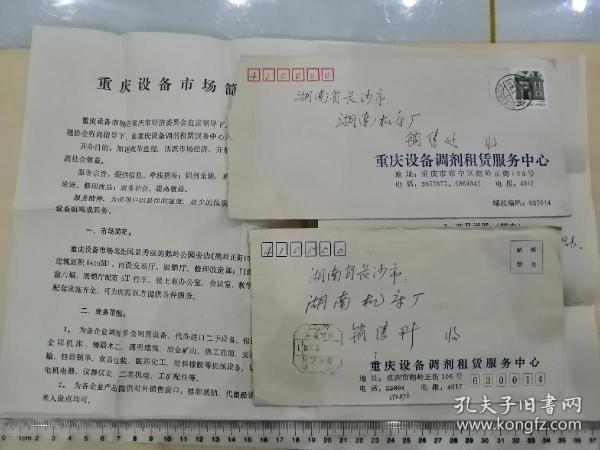 重庆设备市场简
重庆设备市场在重庆市经济委员会直接领导下、
题协会咨询指导下，由重庆设备调剂租赁服务中心
开办目的：加速改革进程，活跃市场经济，开
高社会效益。
服务宗旨：提供信息，牵线搭桥；调剂余缺，
论证，修理改造；服务社会，提高效益。
服务精神：为客户以最快的速度、最少的投资
设备咀喝成服务。
一、市场简况：
重庆设备市场地处风景秀丽的鹅岭公园旁边（鹅岭正街1
建筑面积8410M²，内设交易厅、展销厅、修理改造部；门面
窗六幅，展销厅配有5T行车，楼上有办公室、会议室、教学
配套设施齐全，可为供需双方提供各种服务。
二、业务范围：
1. 为各企业调剂多余闲置设备，代办进口二手设备，包
金切机床、铸锻木工、通用建筑、冶金矿山、热工能源、交
输、轻纺制革、食品包装、医药化工、塑料橡胶等机械设备，
电机电器、仪器仪表、二类机电、工矿配件等。
2. 为各企业产品提供对外销售窗口，挂牌展销，代销经
来人设点均可。
410000
湖南省长沙市
湖南机床厂
销售处 收
20分
重庆设备调剂租赁服务中心
地址：重庆市市中区鹅岭正街106号
电话：3852872、3864842 电报：4017
邮政编码：630014
410000
贴邮
票处
湖南省长沙市：
湖南机床厂
销售科 收
重庆设备调剂租赁服务中心
地址：重庆市鹅岭正街106号
电话：53804 电报：4017
630014
孔夫子旧书网
www.kongfz.com
0 1cm 2 3 4 5 6 7 8 9 10 11 12 13 14 15 16 17 18 19 20 21 22 23 24 25 26 27 28 29 30 31 32 33 34 35 36 37